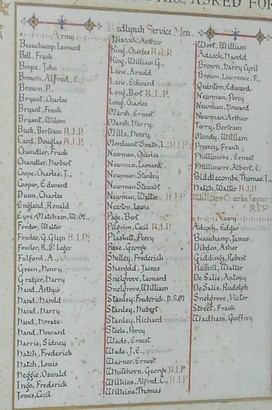 ASKED FOR
Redlynch Service Men.
Army
Beauchamp, Leonard
Bell, Frank
Boyce, John
Brown, Alfred, E.
Brown, P.
Bryant, Charles
Bryant, Frank
Bryant, Wilson
Buck, Bertram R.I.P.
Card, Douglas R.I.P.
Chandler, Frank
Chandler, Herbert
Coope, Charles, J.
Cooper, Edward
Dunn, Charles
England, Arnold
Eyre-Matcham, W.
Forder, Walter
Fowler, G. Glyn R.I.P.
Fowler, R. St Leger
Fulford, A.
Green, Henry
Grater, Harry
Hand, Arthur
Hand, Harold
Hand, Harry
Hand, Horace
Hand, Howard
Harris, Sidney
Hatch, Frederick
Hatch, Louis
Hoggie, Oswald
Ingo, Frederick
Jones, Cecil
Hiscock, Arthur
King, Charles R.I.P.
King, William G.
Lane, Arnold
Lane, Edward
Long, Bert R.I.P.
Long, Charles
Marsh, Ernest
Marsh, Harry
Mills, Henry
Mordaunt Smith, L. R.I.P.
Newman, Charles
Newman, Leonard
Newman, Stanley
Newman Stewart
Newman, Walter R.I.P.
Newton, Lewis
Page, Bert
Pilgrim, Cecil R.I.P.
Plaskett, Percy
Rose, George
Shelley, Frederick
Shergold, James
Snelgrove, Leonard
Snelgrove, William
Stanley, Frederick, D.S.M
Stanley, Hubert
Stanley, Richard
Steele, Percy
Wade, Ernest
Wade, J. E.
Warner, Ernest
Whitehorn, George R.I.P
Wilkins, Alfred, C. R.I.P.
Wilkins, Thomas
Wort, William
Adcock, Harold
Brown, Harry Cyril
Brown, Lawrence, F.
Quinton, Edward
Newman, Percy
Newman, Howard
Newman, Arthur
Terry, Bertram
Moody, William
Privey, Frank
Phillimore, Ernest
Phillimore, Albert, E.
Giddlecombe Thomas, I.
Hatch, Walter R.I.P.
William Charles
Navy
Adcock, Edgar
Beauchamp, James
Dibden, Asher
Giddings, Robert
Russell, Walter
De Salis, Antony
De Salis, Rudolph
Snelgrove, Victor
Street, Frank
Wadham, Geoffrey